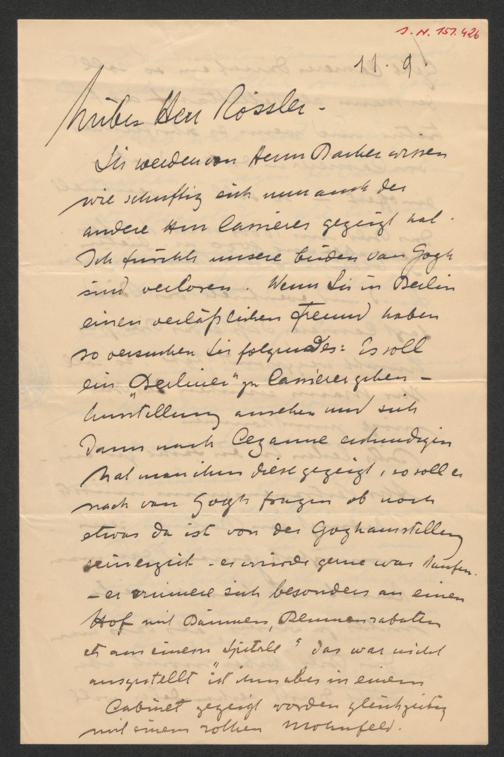 I. N. 151.426
11. 9.
Lieber Herr Rössler –
Sie werden von Herrn Barher wissen
wie schuftig sich nun auch der
andere Herr Cassierer gezeigt hat.
Ich fürchte unsere beiden van Gogh
sind verloren. Wenn Sie in Berlin
einen verläßlichen Freund haben
so versuchen Sie folgendes: Es soll
ein "Berliner" zu Cassierer gehen –
Ausstellung ansehen und sich
dann nach Cezanne erkundigen
hat man ihm diese gezeigt, so soll er
nach van Gogh fragen ob noch
etwas da ist von der Goghausstellung
seinerzeit – er würde gerne was kaufen.
– er erinnere sich besonders an einen
Hof mit Bäumen, Blumenrabatten
etz aus einem Spitale" das war nicht
ausgestellt "ist ihm aber in einem
Cabinet gezeigt worden gleichzeitig
mit einem rothen Mohnfeld.